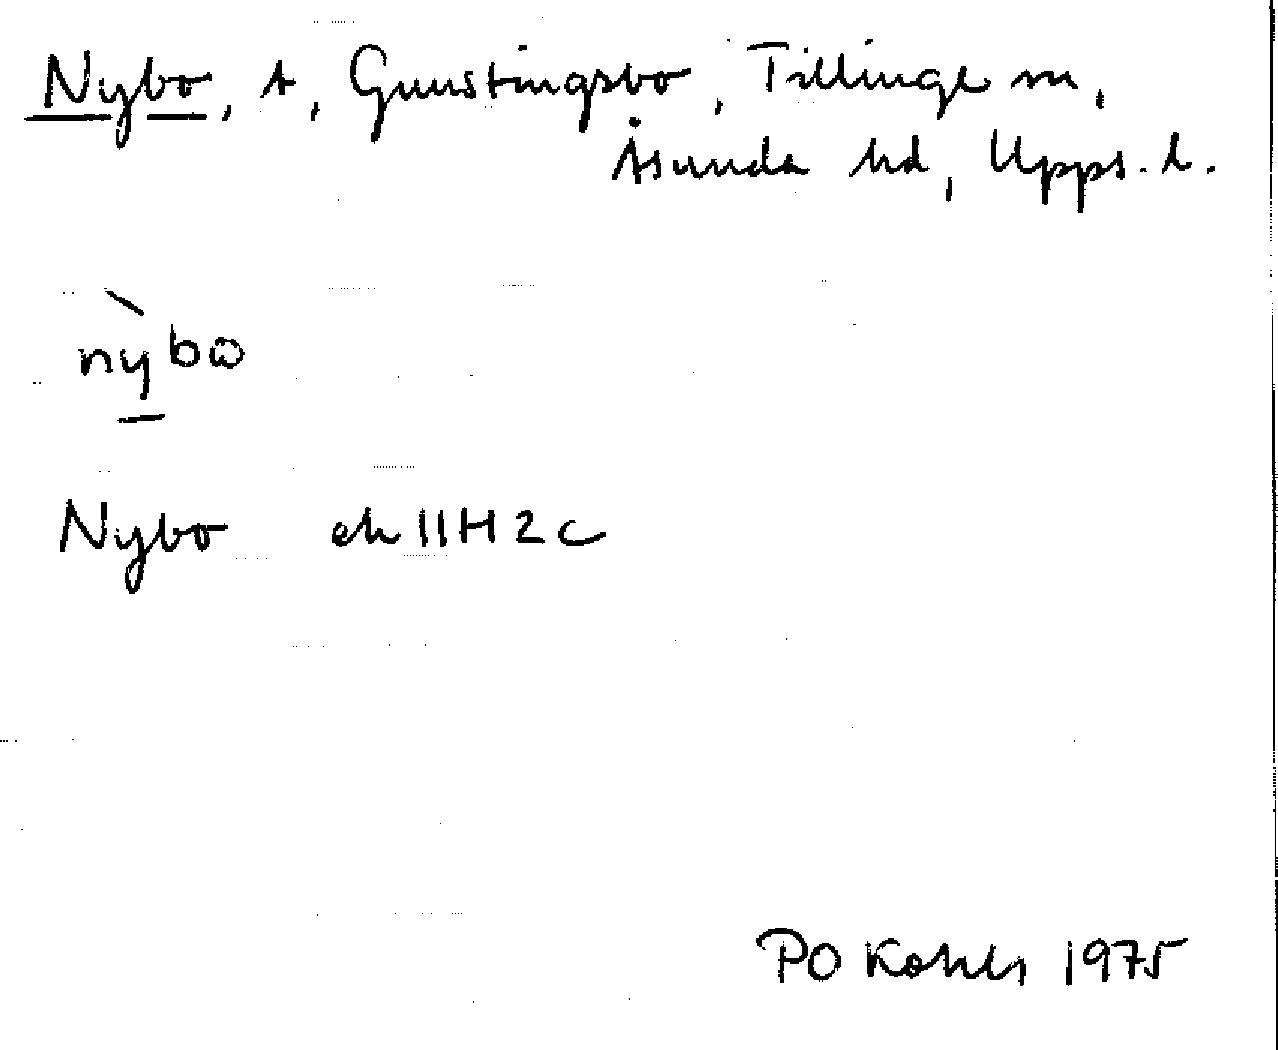 Nybo, t, Grustingsbo, Tillinge sn,
Åsunda hd, Upps. l.
nỳbω
Nybo ek 11H2c
PO 1975